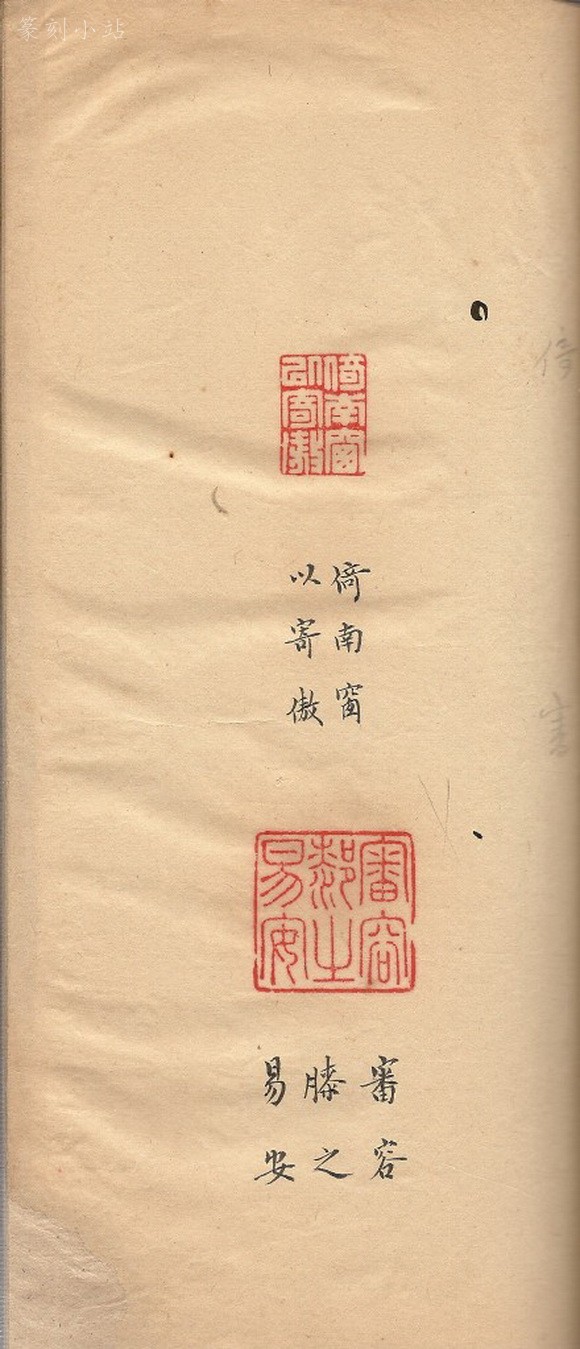 篆刻小站
倚南窗
以寄傲
倚南窗
以寄傲
審容
膝之
易安
審容
膝之
易安
倚
審